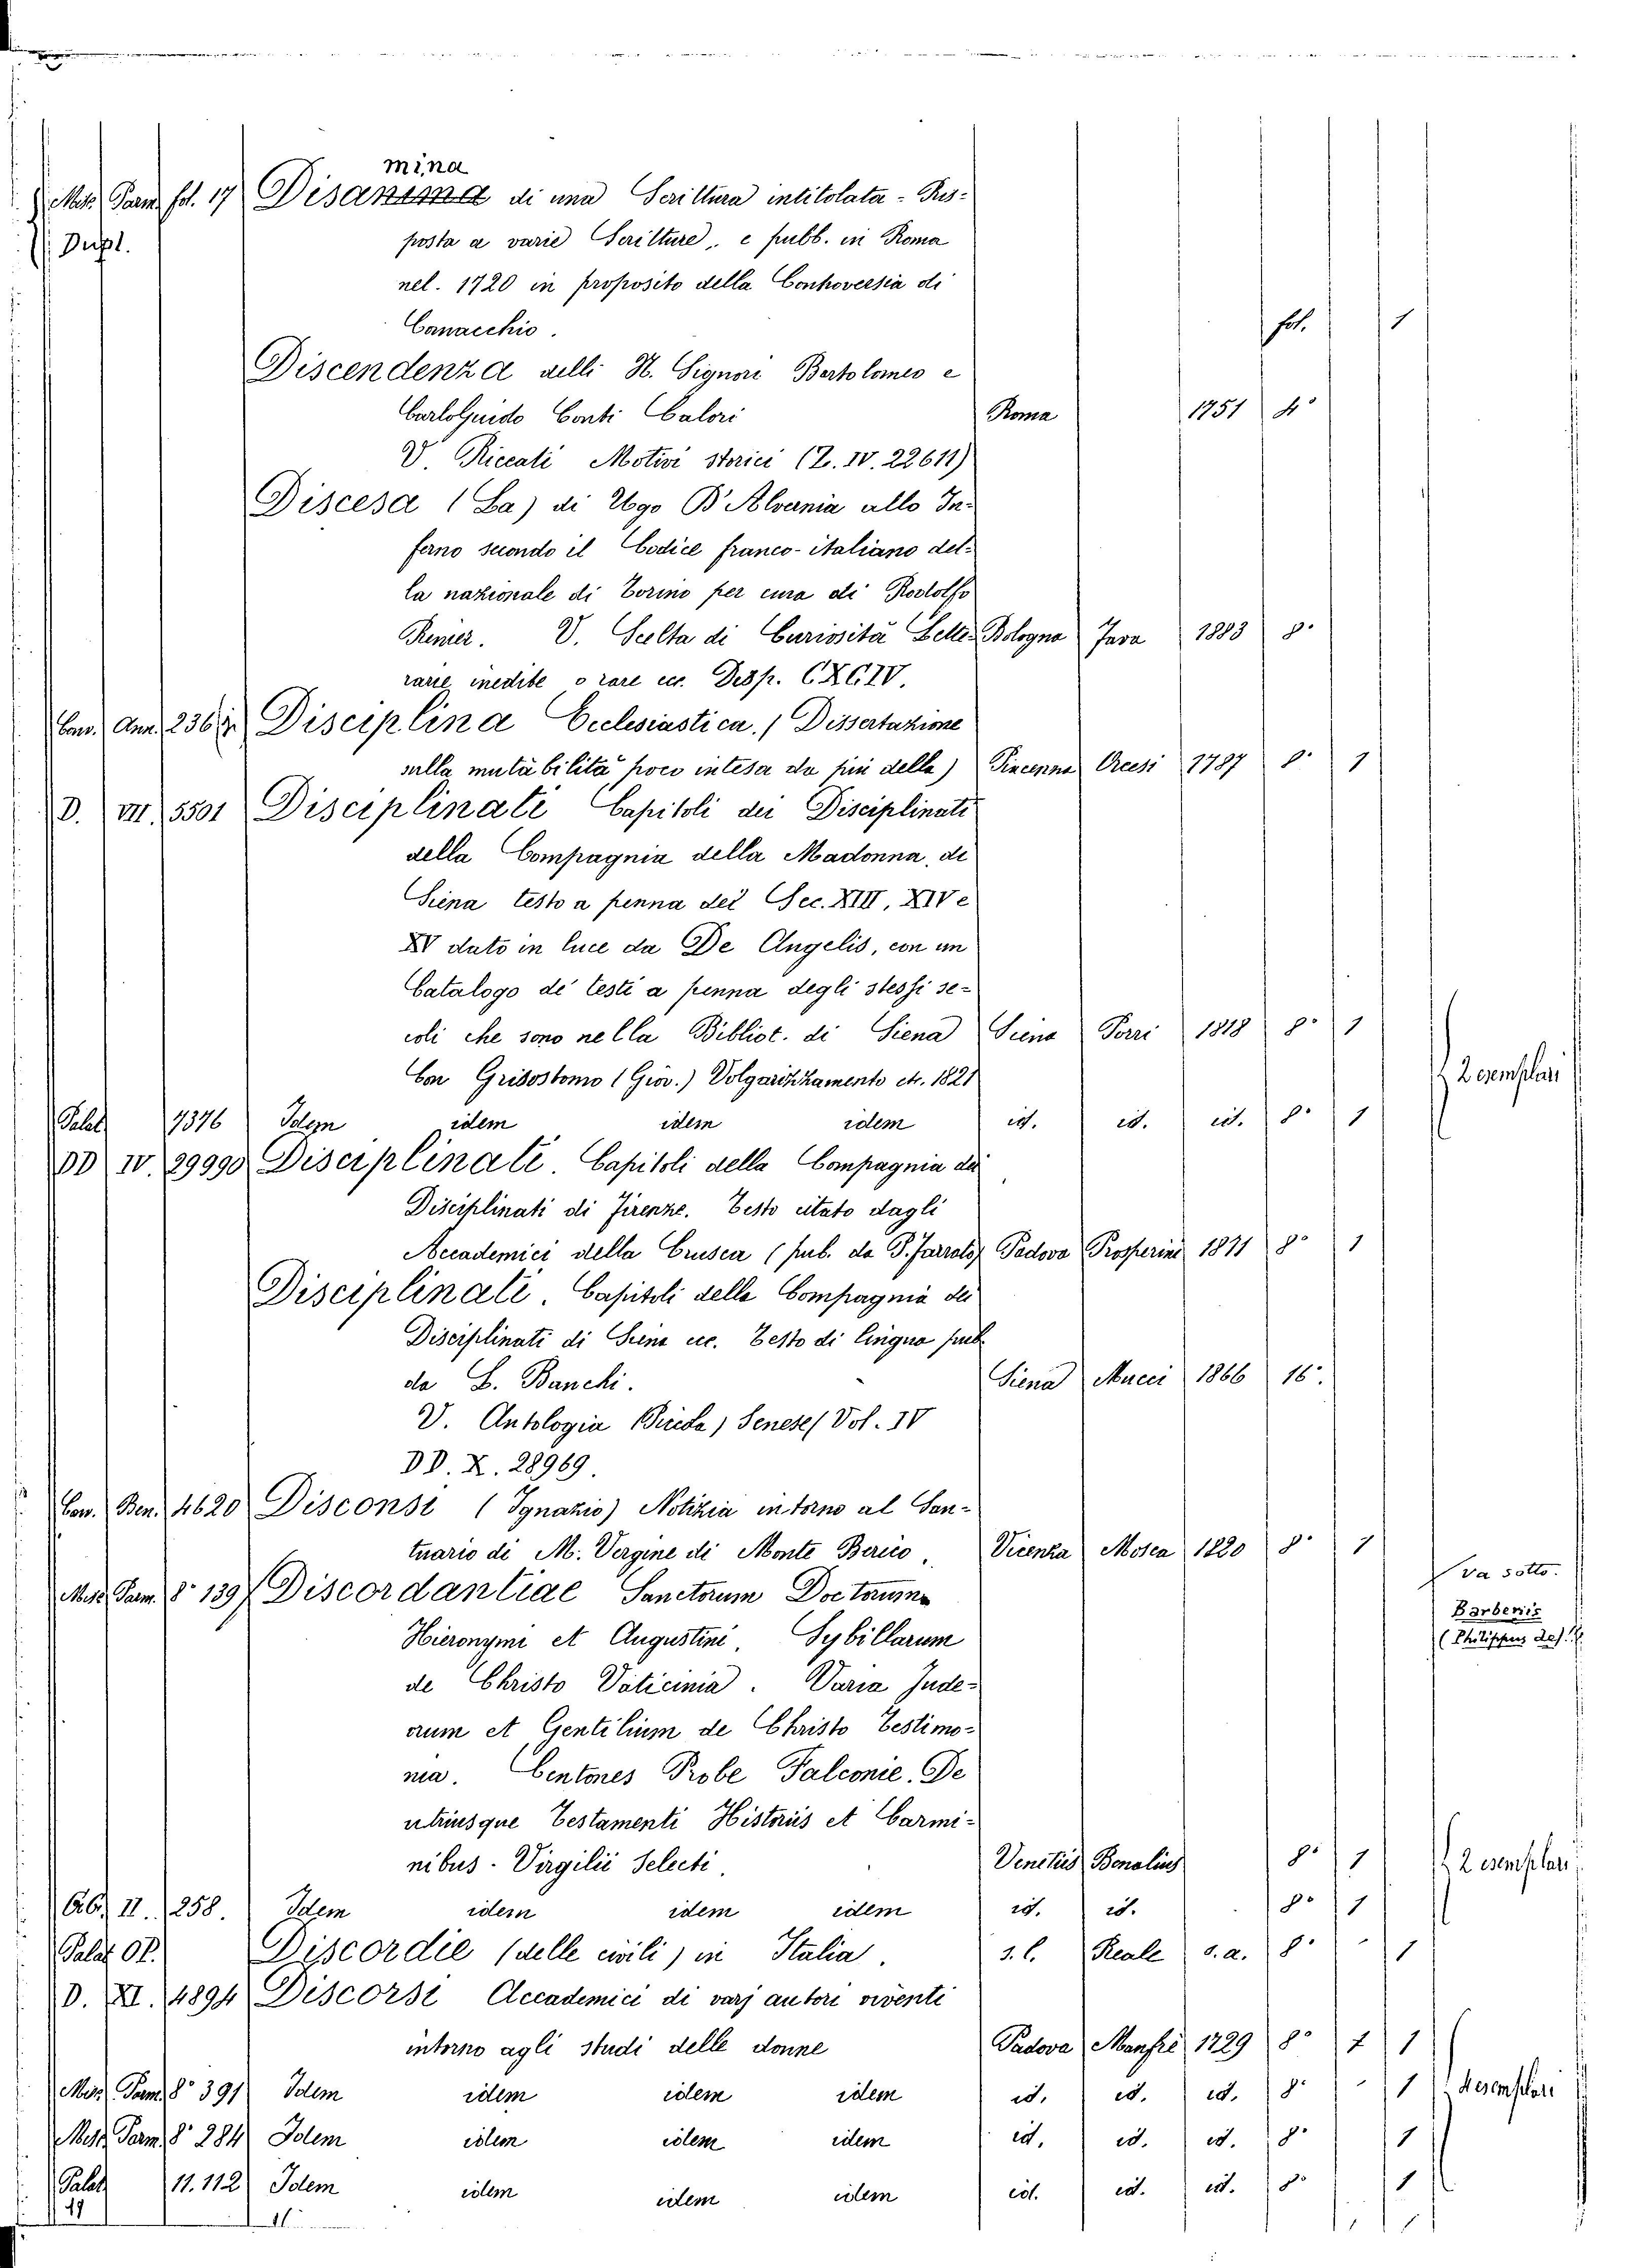 mina
Misc. Parm. fol. 17 Disanima di una Scrittura intitolata - Ris-
Dupl. posta a varie Scritture, e pubb. in Roma
nel. 1720 in proposito della Controversia di
Comacchio. fol. 1
Discendenza delli N. Signori Bartolomeo e
Carlo Guido Conti Calori Roma 1751 4°
V. Riccati Motivi storici (Z. IV. 22611)
Discesa (La) di Ugo D'Alvernia allo In-
ferno secondo il Codice franco-italiano del-
la nazionale di Torino per cura di Rodolfo
Renier. V. Scelta di Curiosità Lette- Bologna Fava 1883 8°
rarie inedite o rare ecc. Disp. CXCIV.
Disciplina Ecclesiastica. (Dissertazione
sulla mutabilità poco intesa da più della) Piacenza Orcesi 1787 8° 1
D. VII. 5501 Disciplinati Capitoli dei Disciplinati
della Compagnia della Madonna, di
Siena testo a penna dei Sec. XIII, XIV e
XV dato in luce da De Angelis, con un
Catalogo de' testi a penna degli stessi se-
coli che sono nella Bibliot. di Siena Siena Porri 1818 8° 1
Con Grisostomo (Giov.) Volgarizzamento etc. 1821 2 esemplari
Palat 7376 Idem idem idem idem id. id. id. 8° 1
DD IV. 29990 Disciplinati. Capitoli della Compagnia dei
Disciplinati di Firenze. Testo citato dagli
Accademici della Crusca (pub. da P. Ferrato) Padova Prosperini 1871 8° 1
Disciplinati. Capitoli della Compagnia dei
Disciplinati di Siena ecc. Testo di lingua pub.
da L. Banchi. Siena Mucci 1866 16°.
V. Antologia Senese (Vol. IV
DD. X. 28969.
Ben. 4620 Disconsi (Ignazio) Notizia intorno al San-
tuario di M. Vergine di Monte Berico. Vicenza Mosca 1820 8° 1
va sotto.
Misc. Parm. 8° 139 Discordantiae Sanctorum Doctorum
Barberiis
Hieronymi et Augustini. Sybillarum (Philippus de)
de Christo Vaticinia. Varia Jude-
orum et Gentilium de Christo Testimo-
nia. Centones Probe Falconie. De
utriusque Testamenti Historiis et Carmi-
nibus. Virgilii Selecti. Venetiis Benalius 8° 1 2 esemplari
II. 258. Idem idem idem idem id. id. 8° 1
Palat Discordie (delle civili) in Italia. s. l. Reale s. a. 8° 1
D. XI. 4894 Discorsi Accademici di varj autori viventi
intorno agli studi delle donne Padova Manfrè 1729 8° 1 1
Misc. Parm. 8° 391 Idem idem idem idem id. id. id. 8° 1 4 esemplari
Misc. Parm. 8° 284 Idem idem idem idem id. id. id. 8° 1
Palat 11.112 Idem idem idem idem id. id. id. 8° 1